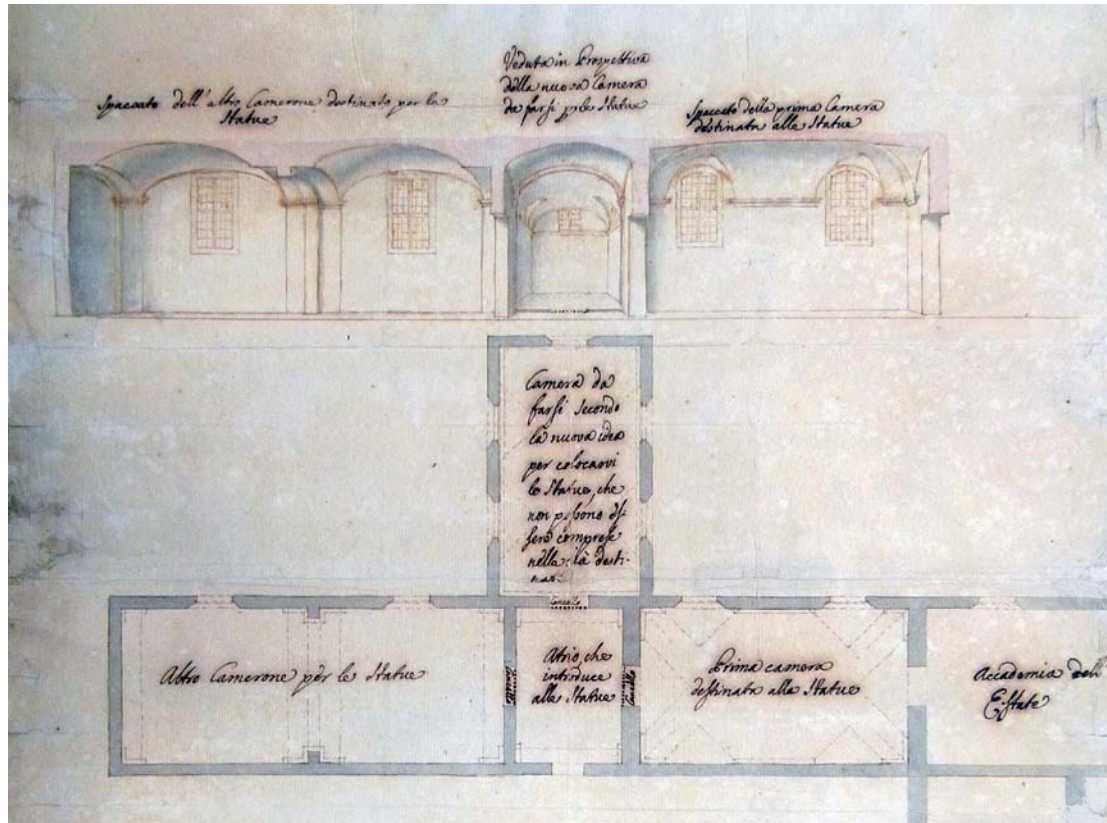 Spaccato dell'altro Camerone destinato per le
Statue
Veduta in Prospettiva
della nuova Camera
da farsi p le Statue
Spaccato della prima Camera
destinata alle Statue
Camera da
farsi secondo
la nuova idea
per colocarvi
le Statue, che
non possono es-
sere comprese
nella già desti-
nata:
Cancello
Altro Camerone per le Statue
Atrio, che
introduce
alle Statue
Cancello
Prima camera
destinata alla Statue
Accademia dell
Estate